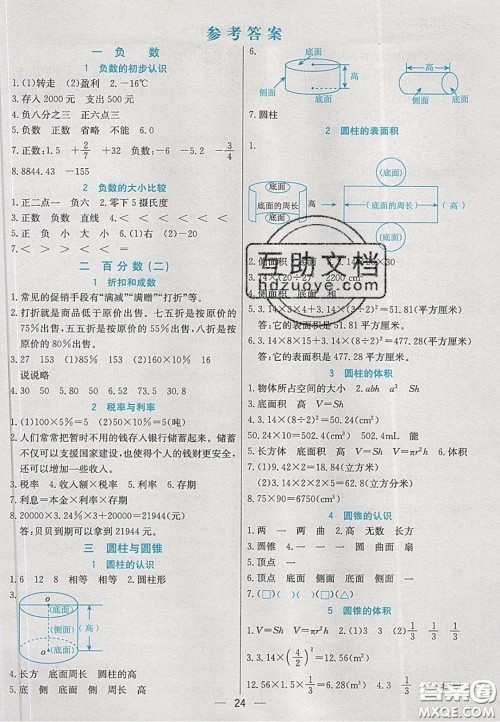 参考答案
一 负 数
1 负数的初步认识
1.(1)转走 (2)盈利 2.-16℃
3.存入2000元 支出500元
4.负八分之三 正六点三
5.负数 正数 省略 不能 6.0
7.正数:1.5 +2/7 +32 负数:-6 -5.2 -3/4
8.8844.43 -155
2 负数的大小比较
1.正二点一 负六 2.零下5摄氏度
3.负数 正数 直线 4.< < < < < <
5.正 大 负 小 6.(1)右 (2)左
7.< > > > > <
二 百分数(二)
1 折扣和成数
1.常见的促销手段有“满减”“满赠”“打折”等。
2.打折就是商品低于原价出售。七五折是按原价的
75%出售,五五折是按原价的55%出售,八折是按
原价的80%出售。
3.27 153 (1)85% 153 (2)160×10% 16
说说略
4.30 50 80 5.10 15.8 30.8
2 税率与利率
1.(1)100×5%=5 (2)50×10%=5(吨)
2.人们常常把暂时不用的钱存入银行储蓄起来。储蓄
不仅可以支援国家建设,也使得个人的钱财更安全,
还可以增加一些收入。
3.税率 4.收入额×税率 5.本金 6.利率
7.利息=本金×利率×存期
8.20000×3.24%×3+20000=21944(元)
答:贝贝到期可以拿到21944元。
三 圆柱与圆锥
1 圆柱的认识
1.6 12 8 相等 相等 2.圆柱形
3.
O
(底面)
(侧面)
(高)
O
(底面)
4.长方 底面周长 圆柱的高
5.底 侧 底面 侧 周长 高
6.
底面
高
侧面
高
侧面
底面
7.圆柱
2 圆柱的表面积
1.
(底面)
(底面)
底面的周长
(底面的周长)
(高)
(底面)
2.侧面积
3.3.14×(20÷2)
4.侧面 底面 和
5.3.14×3×4+3.14×(3÷2)²×2=51.81(平方厘米)
答:它的表面积是51.81平方厘米。
6.3.14×8×15+3.14×(8÷2)²×2=477.28(平方厘米)
答:它的表面积是477.28平方厘米。
3 圆柱的体积
1.物体所占空间的大小 2.abh a³ Sh
3.底面积 高 V=Sh
4.3.14×(8÷2)²=50.24(cm²)
50.24×10=502.4(cm³) 502.4mL 能
5.长方体 底面积 高 V=Sh V=πr²h 6.体积
7.(1)9.42×2=18.84(立方分米)
(2)15.7×4=62.8(立方米)
8.75×90=6750(cm³)
4 圆锥的认识
1.两 一 两 曲 2.曲 3.高 无数 长方
3.圆锥 4.一 一 圆 曲面 扇
5.顶点 一
6.顶点 底面 侧面 底面 一
7.(□) (□)△ (□)△
5 圆锥的体积
1.V=Sh V=πr²h 2.(1)3 3 (2)1/3 1/3
3.3.14×(4/2)²=12.56(m²)
12.56×1.5×1/3=6.28(m³) 4.3 1/3 1/3 1/3
24
互助文档
hdzuoye.com
答案圈
MXQE.COM